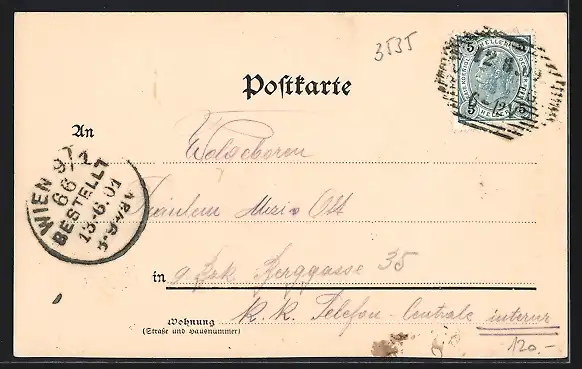 3535
5 HELLER 5
12 6
Postkarte
An
Wolgeboren
WIEN 9/1
66
BESTELLT
13.6.01
Fräulein Ott
in 9 Bzk Berggasse 35
k. k. Telefon-Centrale interur
Wohnung
(Straße und Hausnummer)
120.-